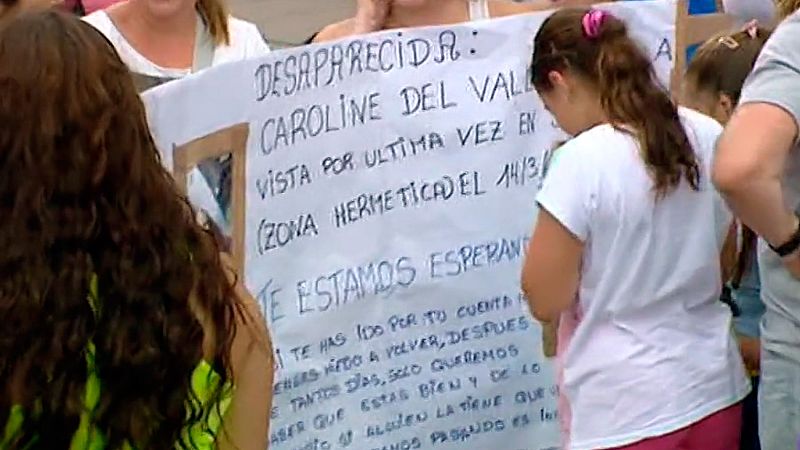 DESAPARECIDA:
CAROLINE DEL VALL A
VISTA POR ULTIMA VEZ EN
(ZONA HERMETICA) DEL 14/3/
TE ESTAMOS ESPERAN
SI TE HAS IDO POR TU CUENTA
TENGAS MIEDO A VOLVER, DESPUES
DE TANTOS DÍAS, SOLO QUEREMOS
SABER QUE ESTAS BIEN Y DE LO
SI ALGUIEN LA TIENE QUE
PASANDO ES